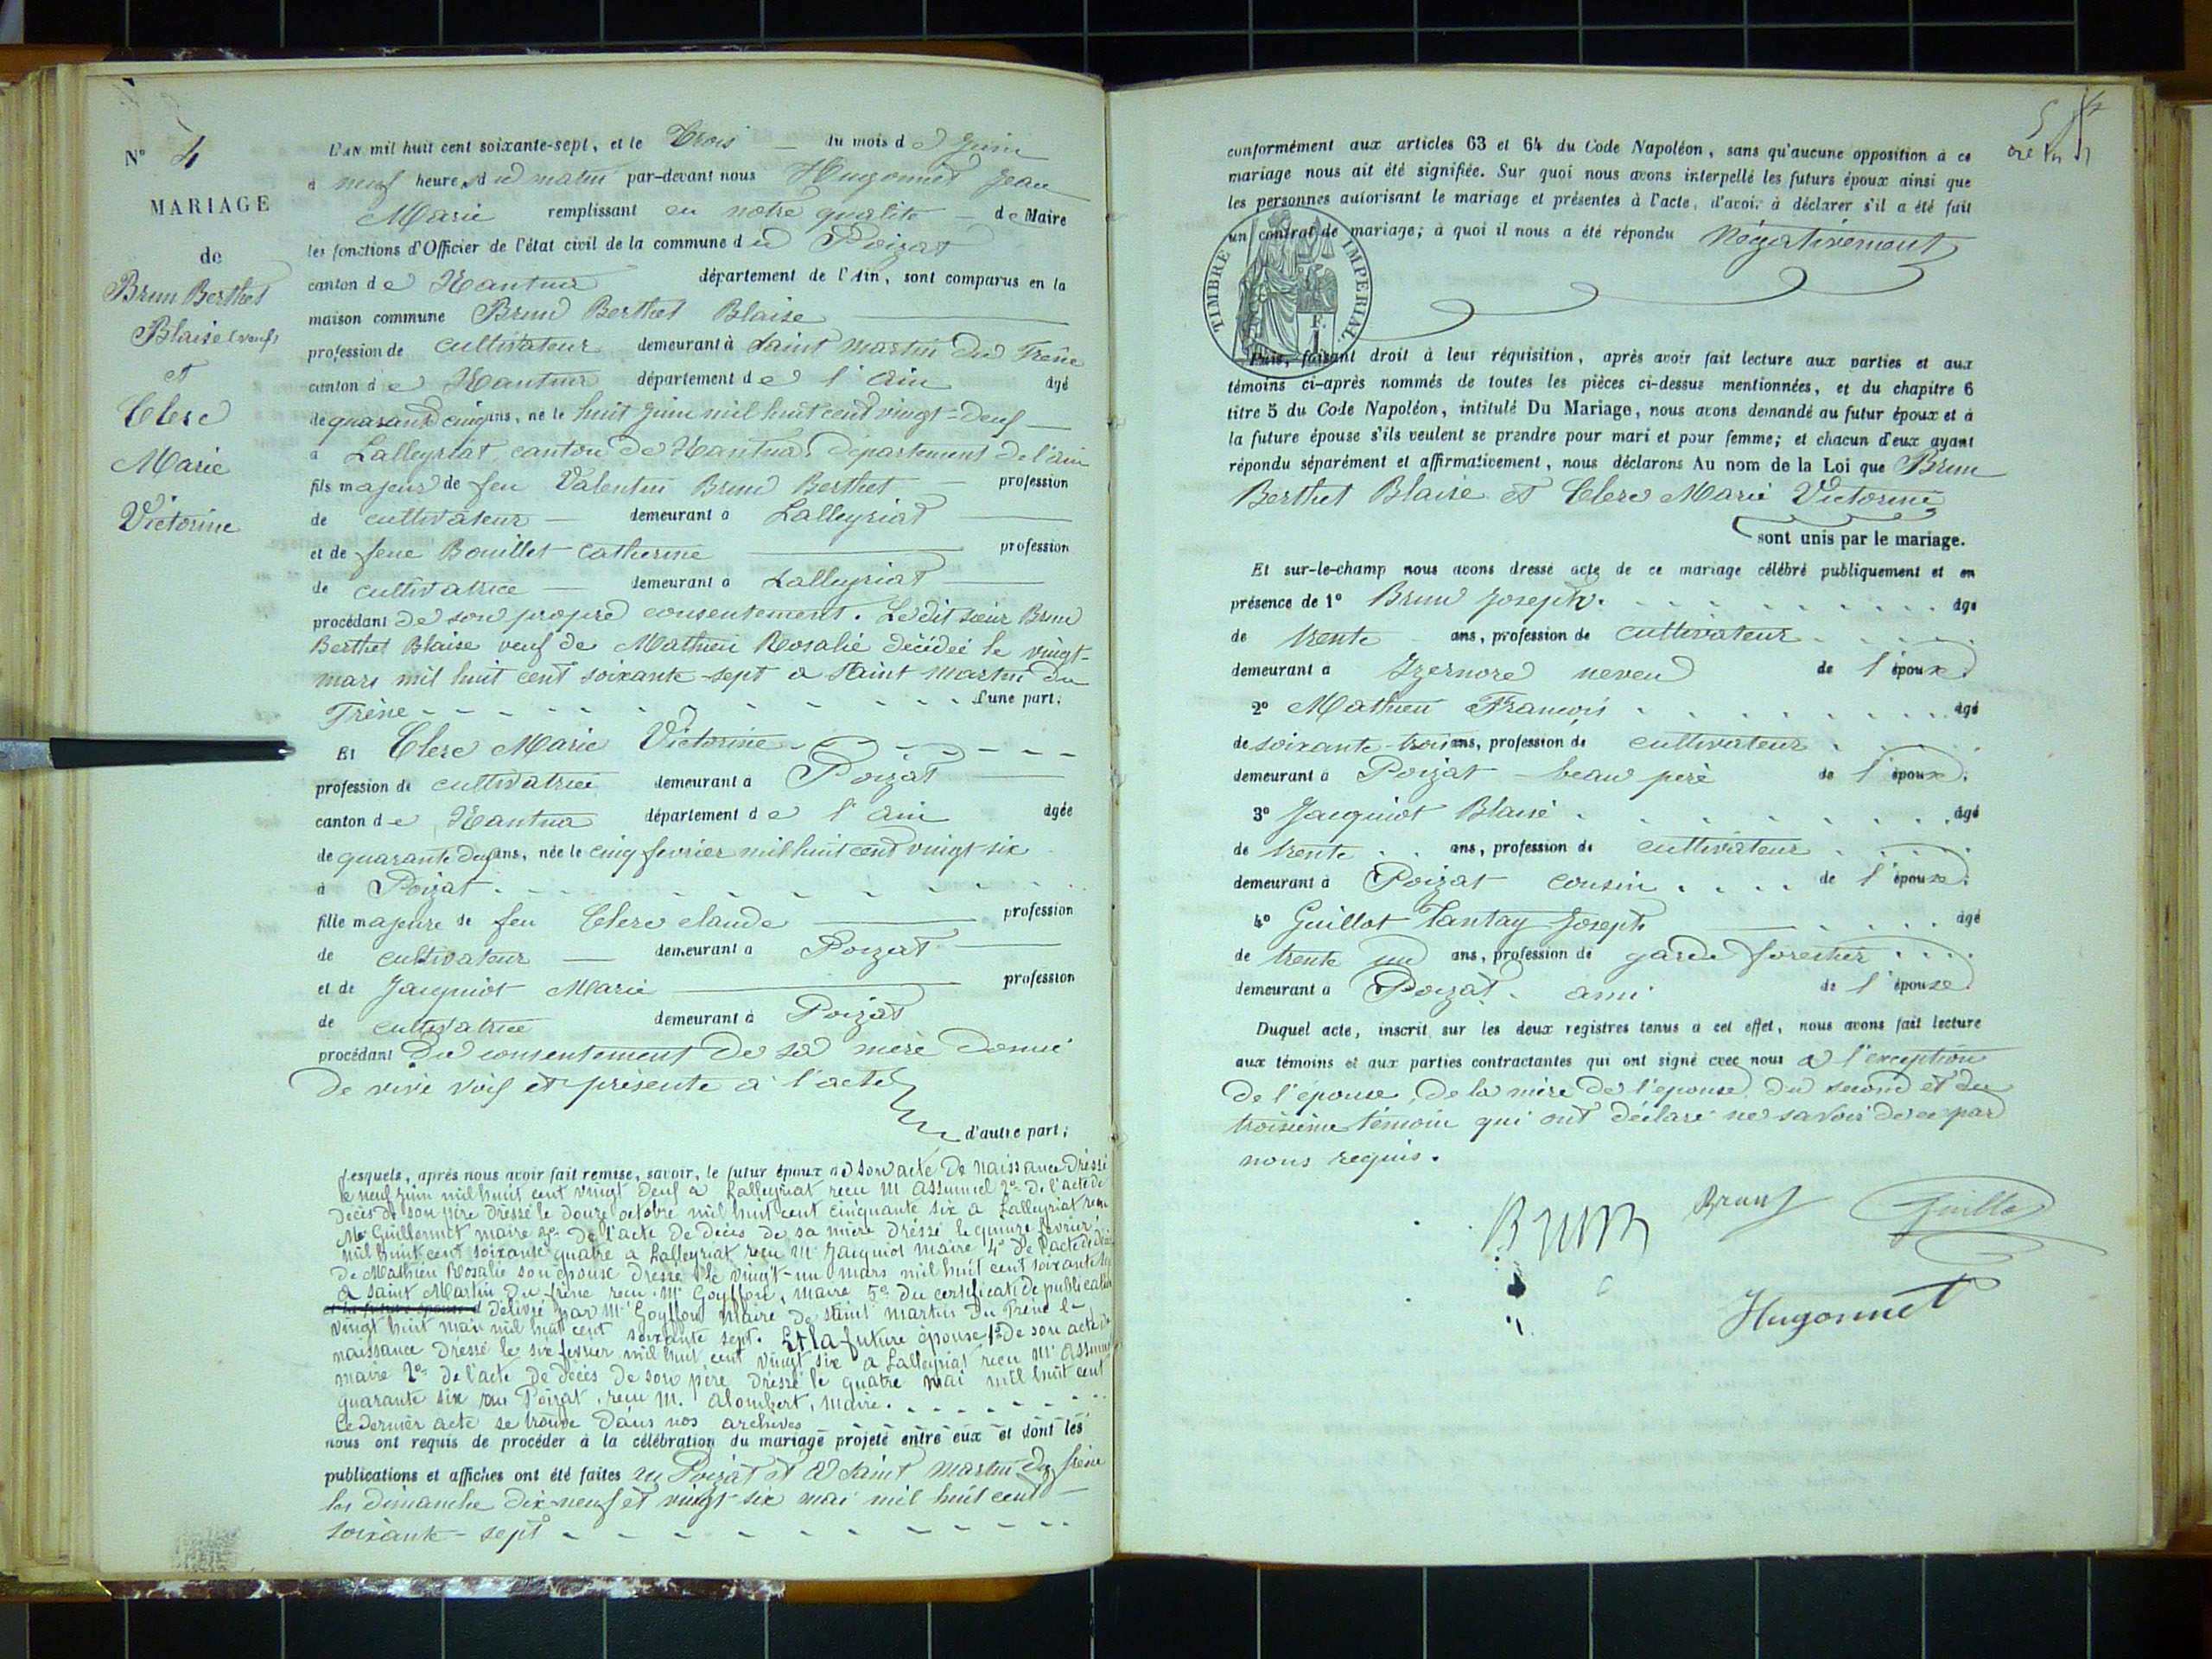 N° 4
MARIAGE
de
Brun Berthet
Blaise (veuf)
et
Clerc
Marie
Victorine
L'AN mil huit cent soixante-sept, et le Trois du mois de Juin
à neuf heures du matin par-devant nous Hugonnet Jean
Marie remplissant en notre qualité de Maire
les fonctions d'Officier de l'état civil de la commune du Poizat
canton de Nantua département de l'Ain, sont comparus en la
maison commune Brun Berthet Blaise
profession de cultivateur demeurant à Saint Martin du Frêne
canton de Nantua département de l'Ain âgé
de quarante cinq ans, né le huit Juin mil huit cent vingt-deux
à Lalleyriat, canton de Nantua, département de l'ain
fils majeur de feu Valentin Brun Berthet profession
de cultivateur demeurant à Lalleyriat
et de feue Bouillet Catherine profession
de cultivatrice demeurant à Lalleyriat
procédant de son propre consentement. Le dit sieur Brun
Berthet Blaise veuf de Mathieu Rosalie décédée le vingt-
mars mil huit cent soixante-sept à Saint Martin du
Frêne d'une part;
Et Clerc Marie Victorine
profession de cultivatrice demeurant à Poizat
canton de Nantua département de l'Ain âgée
de quarante deux ans, née le cinq fevrier mil huit cent vingt-six
à Poizat
fille majeure de feu Clerc claude profession
de cultivateur demeurant à Poizat
et de Jacquiot Marie profession
de cultivatrice demeurant à Poizat
procédant du consentement de sa mère donné
de vive voix et présente à l'acte
d'autre part;
Lesquels, après nous avoir fait remise, savoir, le futur époux de son acte de naissance dressé
le neuf juin mil huit cent vingt deux à Lalleyriat reçu M. 2° de l'acte de
décès de son père dressé le douze octobre mil huit cent cinquante six à Lalleyriat reçu
Mr Guillermet maire 3° de l'acte de décès de sa mère dressé le quinze février
mil huit cent soixante quatre à Lalleyriat reçu Mr Jacquiot maire 4° de l'acte de décès
de Mathieu Rosalie son épouse dressé le vingt-un mars mil huit cent soixante sept
à Saint Martin du frêne reçu Mr Goyffon, maire 5° du certificat de publication
délivré par Mr Goyffon maire de Saint Martin du Frêne le
vingt huit mai mil huit cent soixante sept. Et la future épouse 1° de son acte de
naissance dressé le six fevrier mil huit cent vingt six à Lalleyriat reçu Mr
maire 2° de l'acte de décès de son père dressé le quatre mai mil huit cent
quarante six au Poizat, reçu M. Alombert, maire.
Ce dernier acte se trouve dans nos archives
nous ont requis de procéder à la célébration du mariage projeté entre eux et dont les
publications et affiches ont été faites au Poizat et à Saint Martin du frêne
les dimanche dix-neuf et vingt-six mai mil huit cent
soixante-sept
conformément aux articles 63 et 64 du Code Napoléon, sans qu'aucune opposition à ce
mariage nous ait été signifiée. Sur quoi nous avons interpellé les futurs époux ainsi que
les personnes autorisant le mariage et présentes à l'acte, d'avoir à déclarer s'il a été fait
un contrat de mariage; à quoi il nous a été répondu Négativement
TIMBRE IMPERIAL
1 F.
Puis, faisant droit à leur réquisition, après avoir fait lecture aux parties et aux
témoins ci-après nommés de toutes les pièces ci-dessus mentionnées, et du chapitre 6
titre 5 du Code Napoléon, intitulé Du Mariage, nous avons demandé au futur époux et à
la future épouse s'ils veulent se prendre pour mari et pour femme; et chacun d'eux ayant
répondu séparément et affirmativement, nous déclarons Au nom de la Loi que Brun
Berthet Blaise et Clerc Marie Victorine
sont unis par le mariage.
Et sur-le-champ nous avons dressé acte de ce mariage célébré publiquement et en
présence de 1° Brun Joseph. âgé
de trente ans, profession de cultivateur
demeurant à Izernore neveu de l'époux
2° Mathieu François âgé
de soixante-trois ans, profession de cultivateur
demeurant à Poizat beau père de l'époux.
3° Jacquiot Blaise âgé
de trente ans, profession de cultivateur
demeurant à Poizat cousin de l'épouse.
4° Guillot Tantay Joseph âgé
de trente un ans, profession de garde forestier
demeurant à Poizat. ami de l'épouse
Duquel acte, inscrit sur les deux registres tenus à cet effet, nous avons fait lecture
aux témoins et aux parties contractantes qui ont signé avec nous à l'exception
de l'épouse, de la mère de l'épouse du second et du
troisième témoin qui ont déclaré ne savoir de ce par
nous requis.
Brun Brun Guillot
Hugonnet